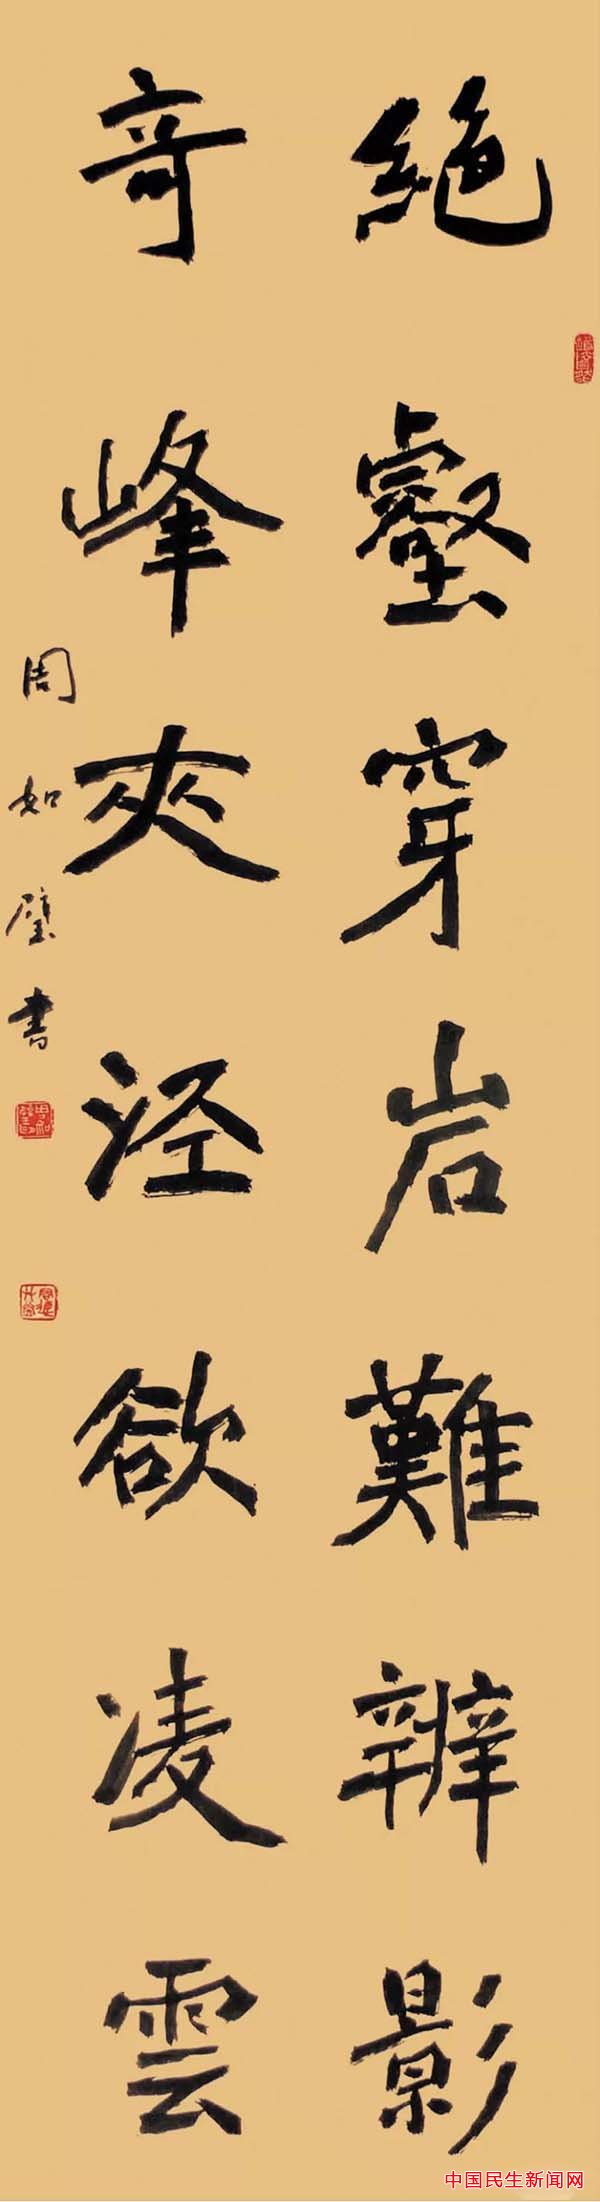 絕壑穿岩難辨影
奇峰夾泾欲凌雲
周如璧書
中国民生新闻网